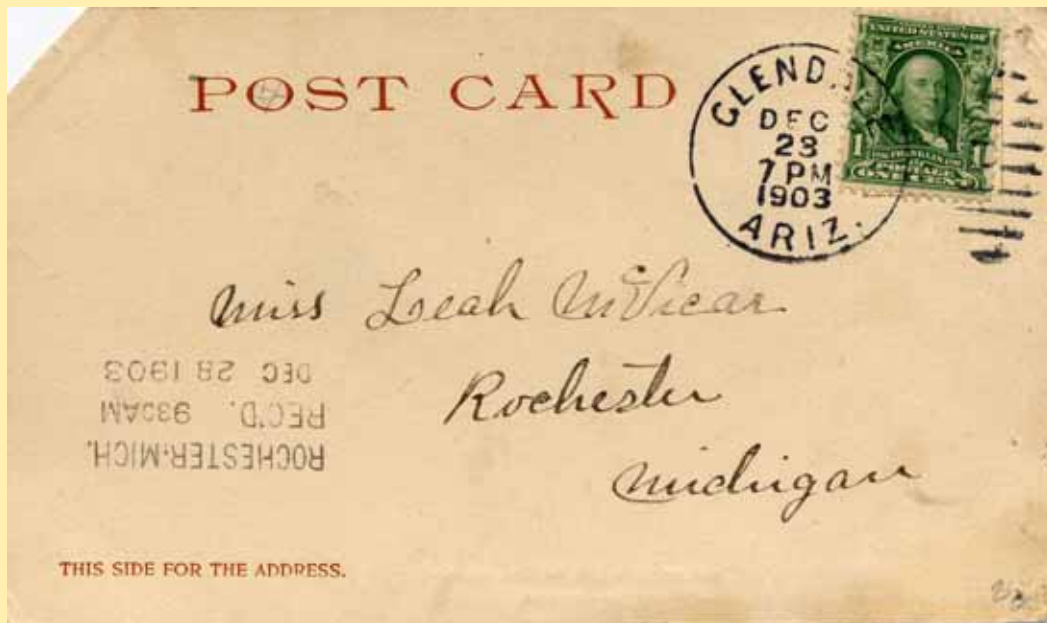 POST CARD
GLENDALE
DEC
23
7 PM
1903
ARIZ.
UNITED STATES OF
AMERICA
1 1
FRANKLIN
POSTAGE
ONE CENT
Miss Leah McVicar
Rochester
Michigan
ROCHESTER·MICH.
REC'D. 930AM
DEC 28 1903
THIS SIDE FOR THE ADDRESS.